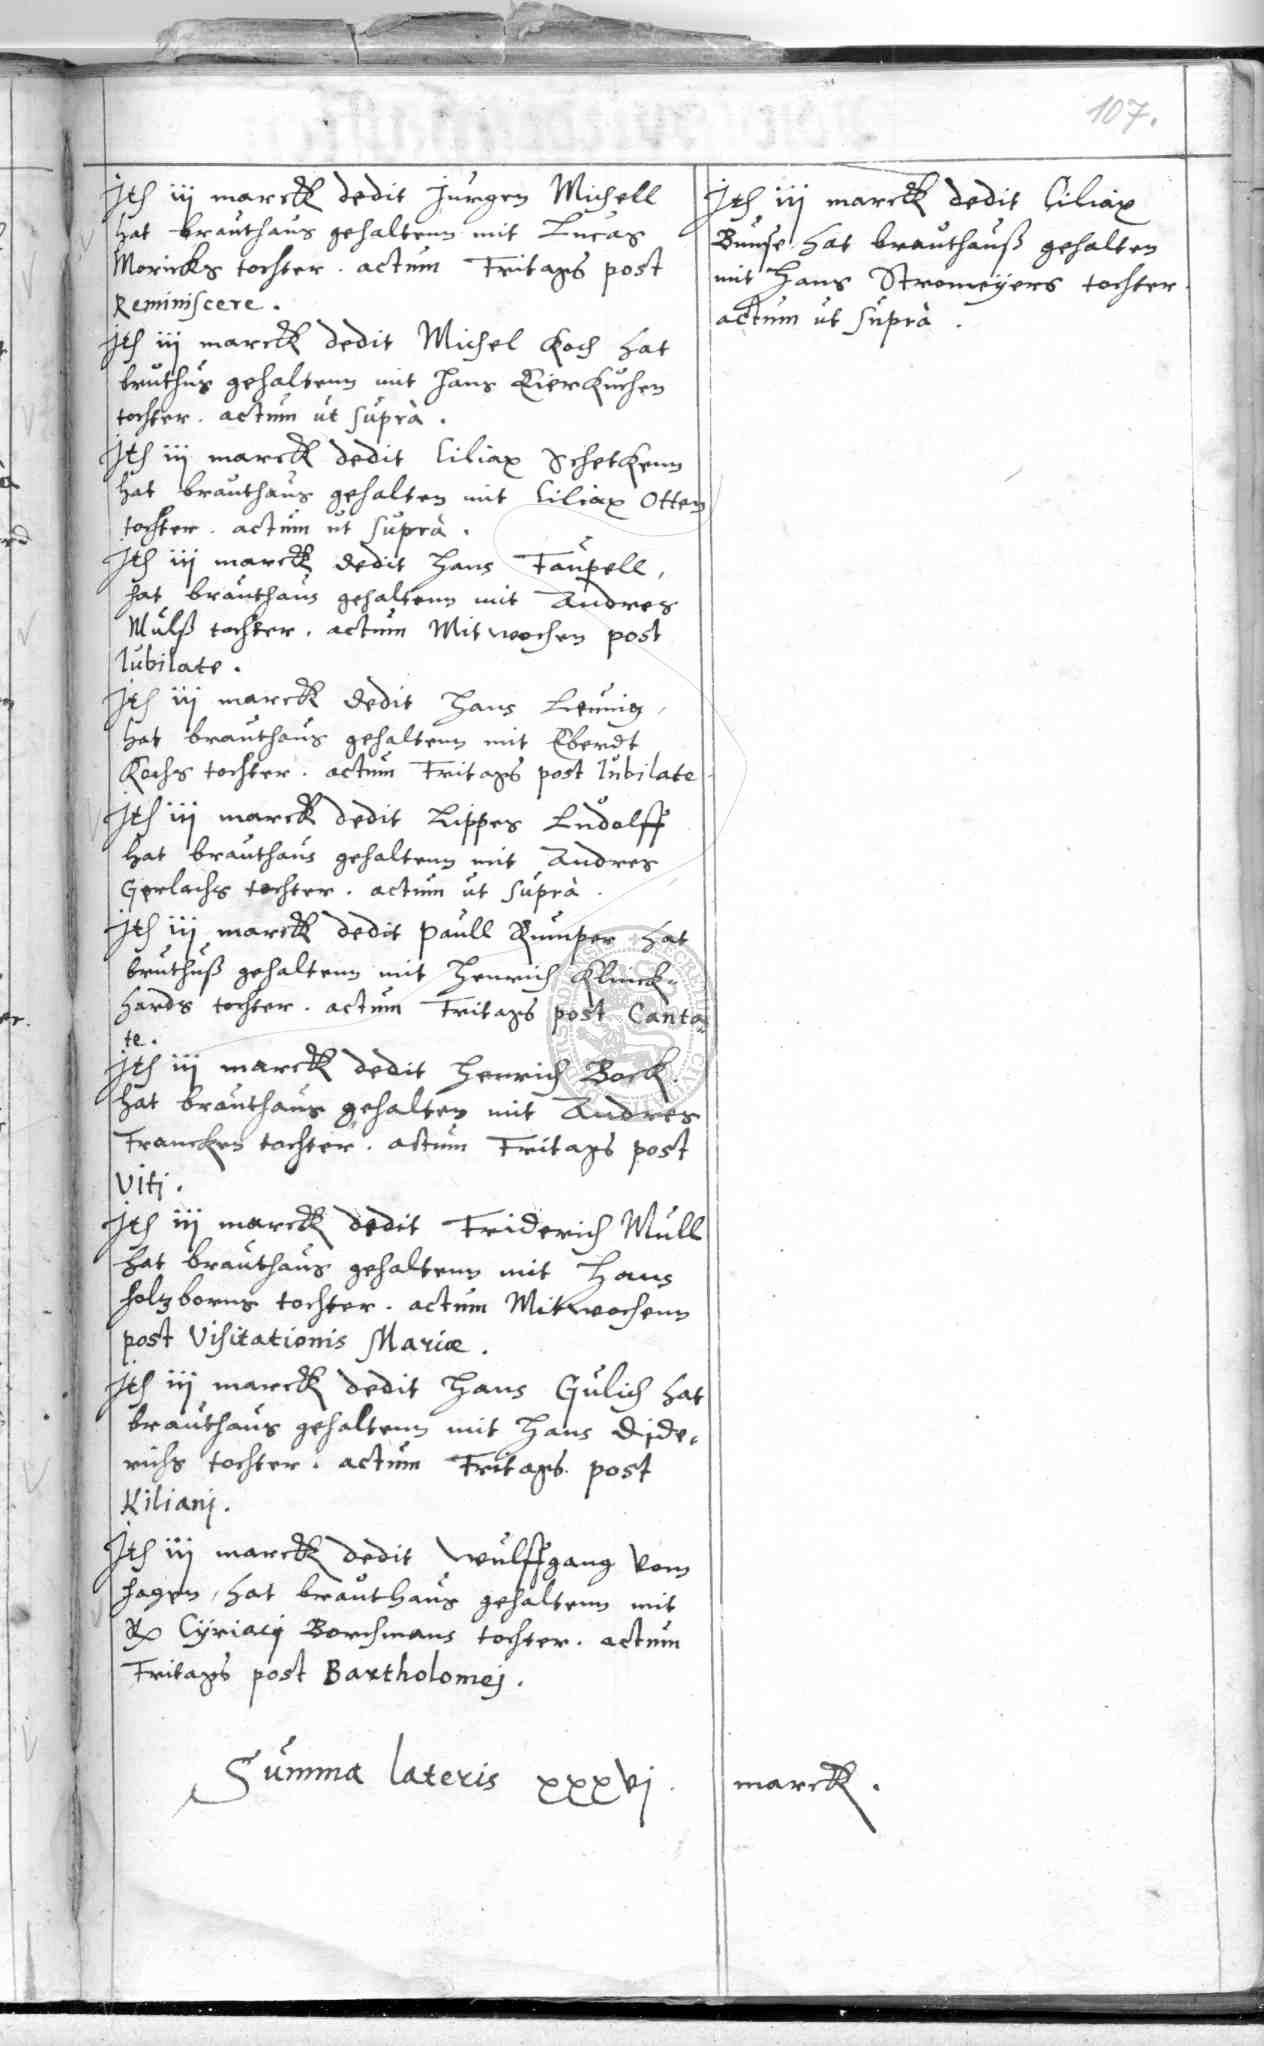 107.
Itē iij marck dedit Jurgen Michell
hat brauthaus gehaltenn mit Lucas
Moricks tochter . actum Fritags post
Reminiscere .
Itē iij marck dedit Michel Koch hat
bruthus gehaltenn mit Hans Eierkuchen
tochter . actum ut suprà .
Itē iij marck dedit Ciliax Schetkenn
hat brauthaus gehalten mit Ciliax Otten
tochter . actum ut suprà .
Itē iij marck dedit Hans Faupell,
hat brauthaus gehaltenn mit Andres
Mulß tochter . actum Mitwochen post
Iubilate .
Itē iij marck dedit Hans
hat brauthaus gehaltenn mit Eberdt
Kochs tochter . actum Fritags post Iubilate
Itē iij marck dedit Lippes Ludolff
hat brauthaus gehaltenn mit Andres
Gerlachs tochter . actum ut suprà .
Itē iij marck dedit Paull Kumper hat
bruthuß gehaltenn mit Henrich Klinck=
hards tochter . actum Fritags post Canta=
te .
Itē iij marck dedit Henrich Bock .
hat brauthaus gehalten mit Andres
Francken tochter . actum Fritags post
Viti .
Itē iij marck dedit Friderich Mull
hat brauthaus gehaltenn mit Hans
Holzborns tochter . actum Mitwochenn
post Visitationis Mariæ .
Itē iij marck dedit Hans Gulich hat
brauthaus gehaltenn mit Hans Dide=
richs tochter . actum Fritags post
Kiliani .
Itē iij marck dedit Wulffgang vom
Hagen, hat brauthaus gehaltenn mit
Cyriaci Borchmans tochter . actum
Fritags post Bartholomei .
Itē iij marck dedit Ciliax
Bunse hat brauthauß gehalten
mit Hans Stromeyers tochter .
actum ut suprà .
Summa lateris xxxvj . marck .